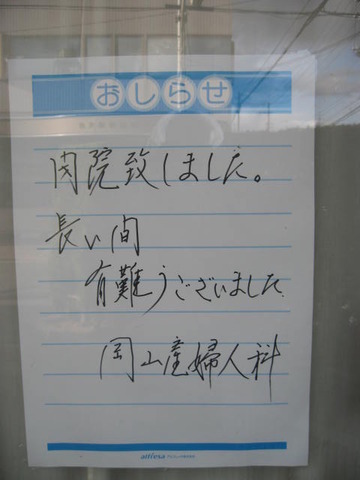 おしらせ
閉院致しました。
長い間
有難うございました
岡山産婦人科
alfresa